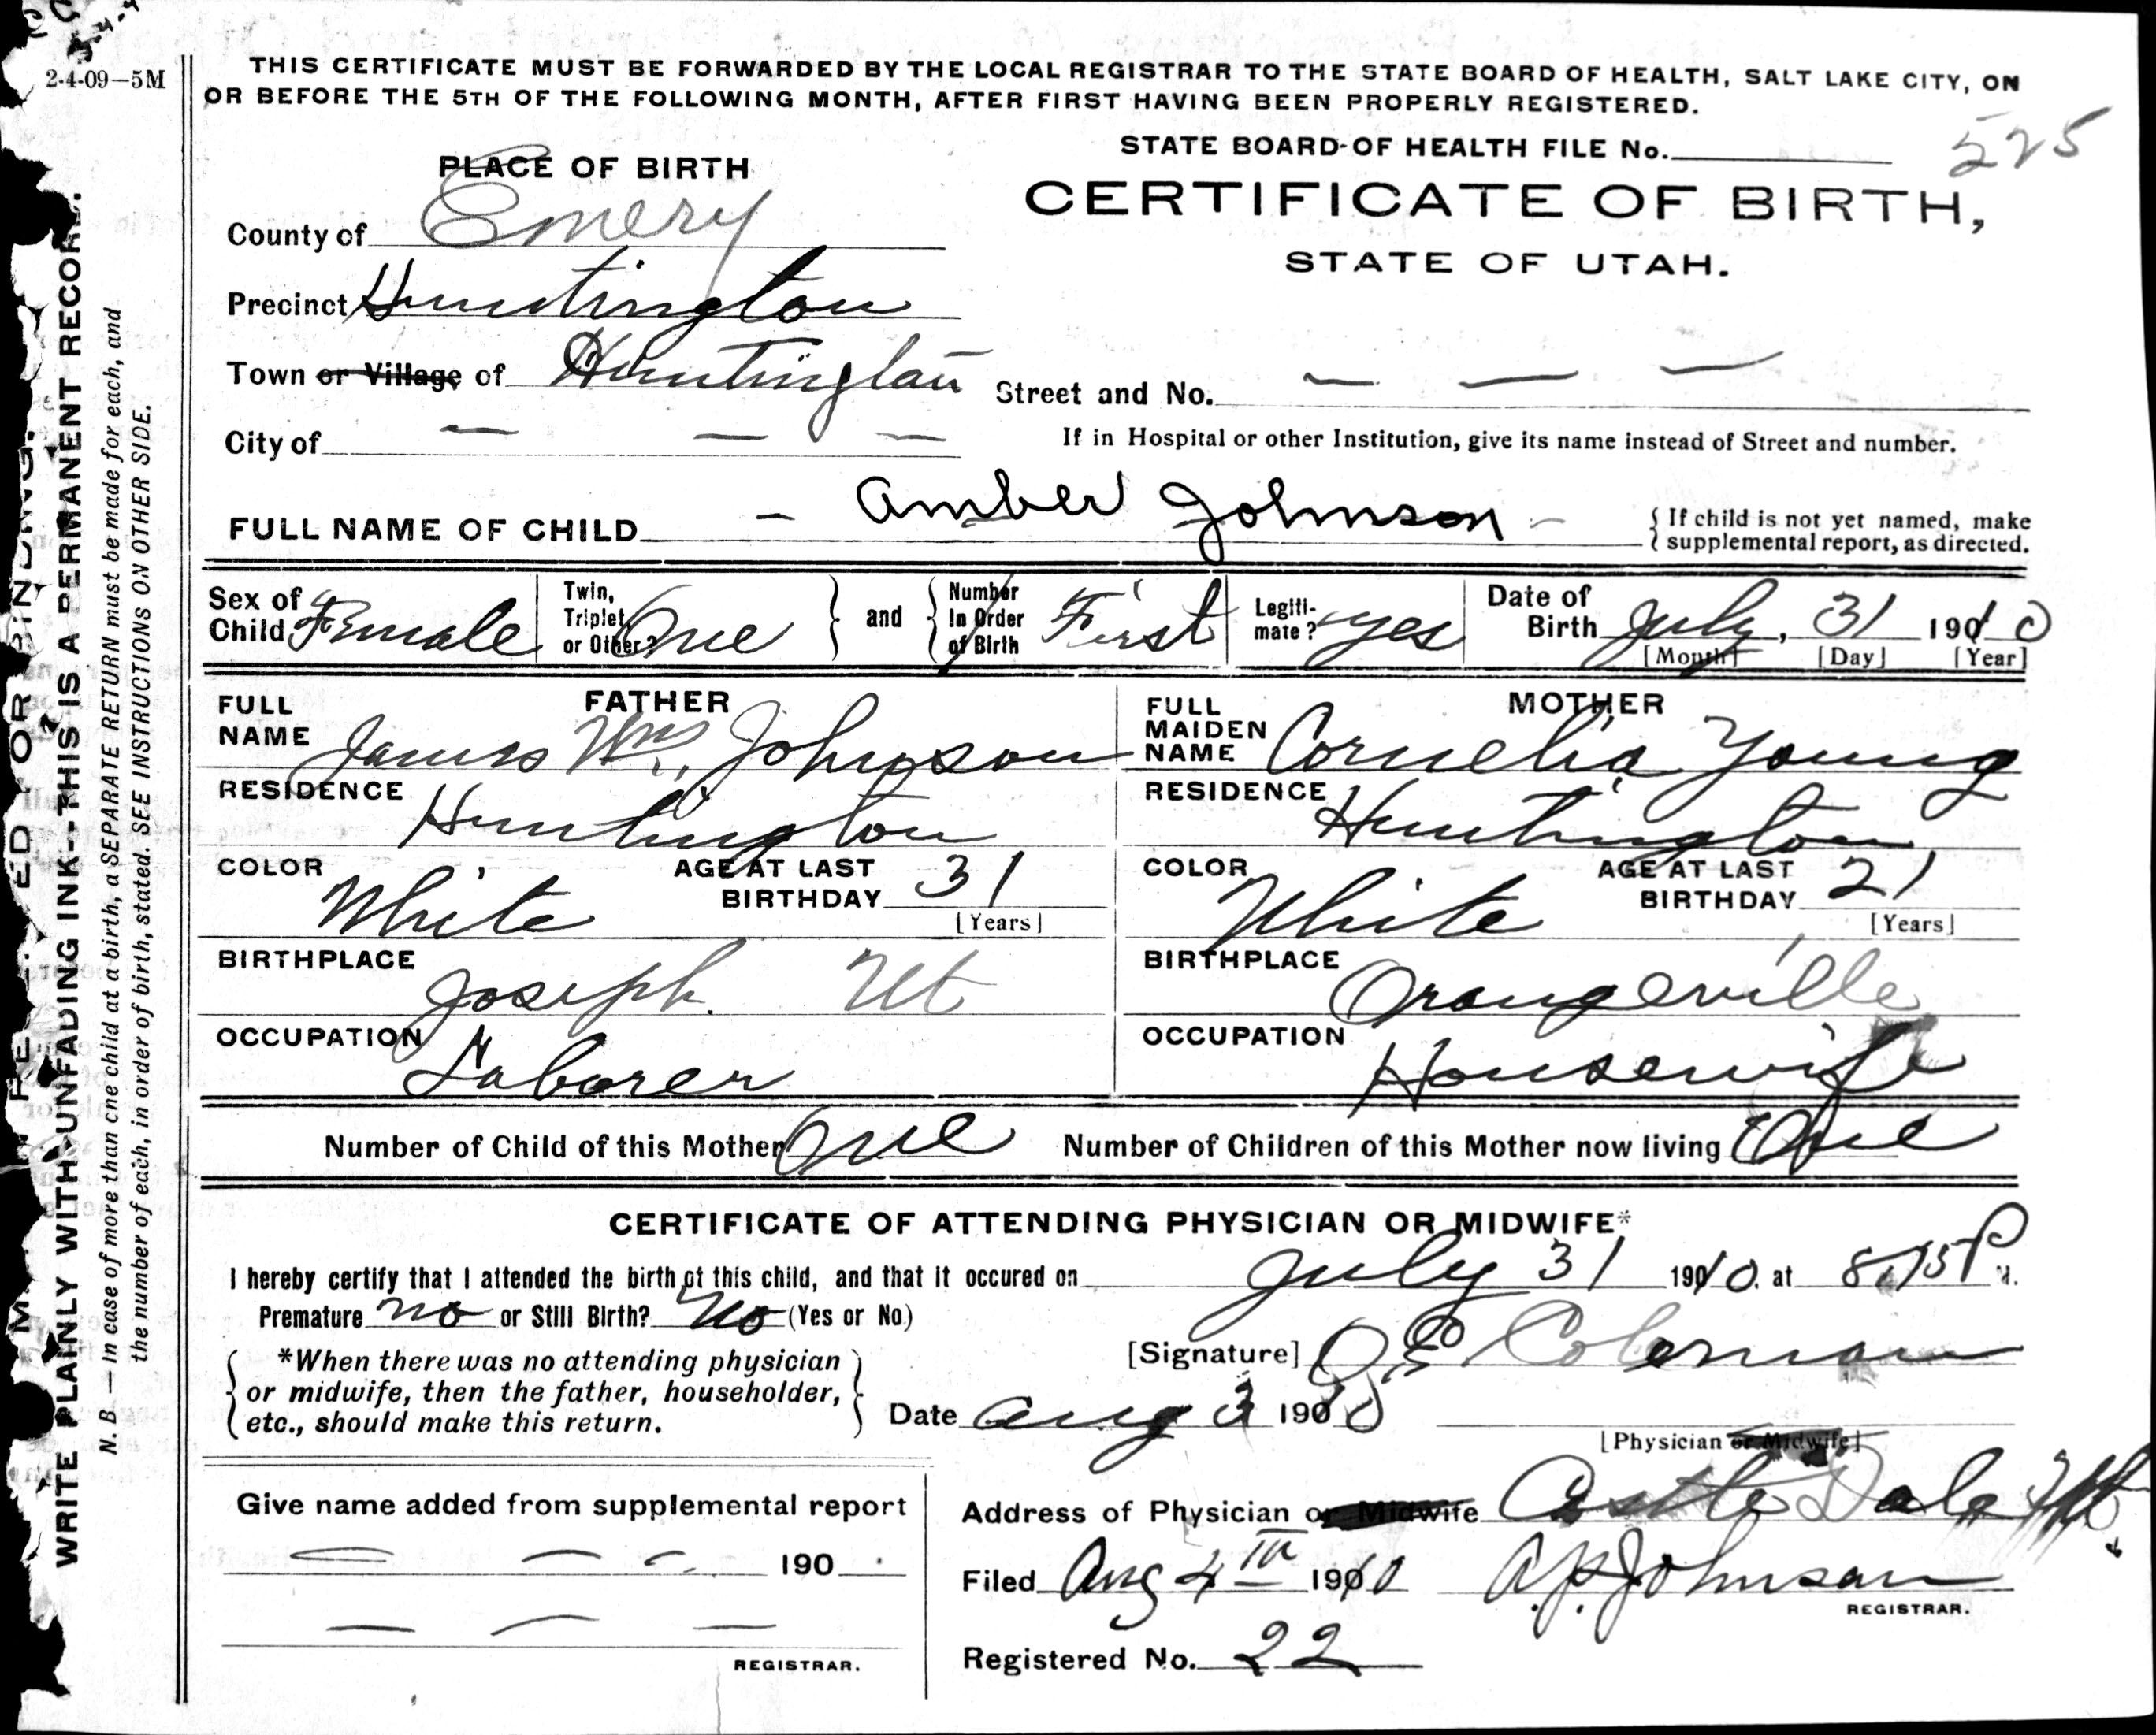 2-4-09—5M
THIS CERTIFICATE MUST BE FORWARDED BY THE LOCAL REGISTRAR TO THE STATE BOARD OF HEALTH, SALT LAKE CITY, ON
OR BEFORE THE 5TH OF THE FOLLOWING MONTH, AFTER FIRST HAVING BEEN PROPERLY REGISTERED.
STATE BOARD OF HEALTH FILE No. 525
PLACE OF BIRTH
CERTIFICATE OF BIRTH,
STATE OF UTAH.
County of Emery
Precinct Huntington
Town or Village of Huntington
Street and No. — — —
City of — — —
If in Hospital or other Institution, give its name instead of Street and number.
FULL NAME OF CHILD - Amber Johnson -
{ If child is not yet named, make
{ supplemental report, as directed.
Sex of Child Female
Twin, Triplet or Other? One } and { Number In Order of Birth First
Legiti-mate? yes
Date of Birth July, 31 1910
[Month] [Day] [Year]
FATHER
FULL NAME James Wm. Johnson
RESIDENCE Huntington
COLOR White
AGE AT LAST BIRTHDAY 31
[Years]
BIRTHPLACE Joseph. Ut
OCCUPATION Laborer
MOTHER
FULL MAIDEN NAME Cornelia Young
RESIDENCE Huntington
COLOR White
AGE AT LAST BIRTHDAY 21
[Years]
BIRTHPLACE Orangeville
OCCUPATION Housewife
Number of Child of this Mother One Number of Children of this Mother now living One
CERTIFICATE OF ATTENDING PHYSICIAN OR MIDWIFE*
I hereby certify that I attended the birth of this child, and that it occured on July 31 1910. at 8.15 P M.
Premature no or Still Birth? No (Yes or No)
*When there was no attending physician
or midwife, then the father, householder,
etc., should make this return.
[Signature] Coleman
Date Aug 3 1910
[Physician or Midwife]
Address of Physician or Midwife Castle Dale Ut
Give name added from supplemental report
— — — 190
— — —
REGISTRAR.
Filed Aug 4 TH 1910 A.P. Johnson
REGISTRAR.
Registered No. 22
WRITE PLAINLY WITH UNFADING INK--THIS IS A PERMANENT RECORD.
N. B.—In case of more than one child at a birth, a SEPARATE RETURN must be made for each, and
the number of each, in order of birth, stated. SEE INSTRUCTIONS ON OTHER SIDE.